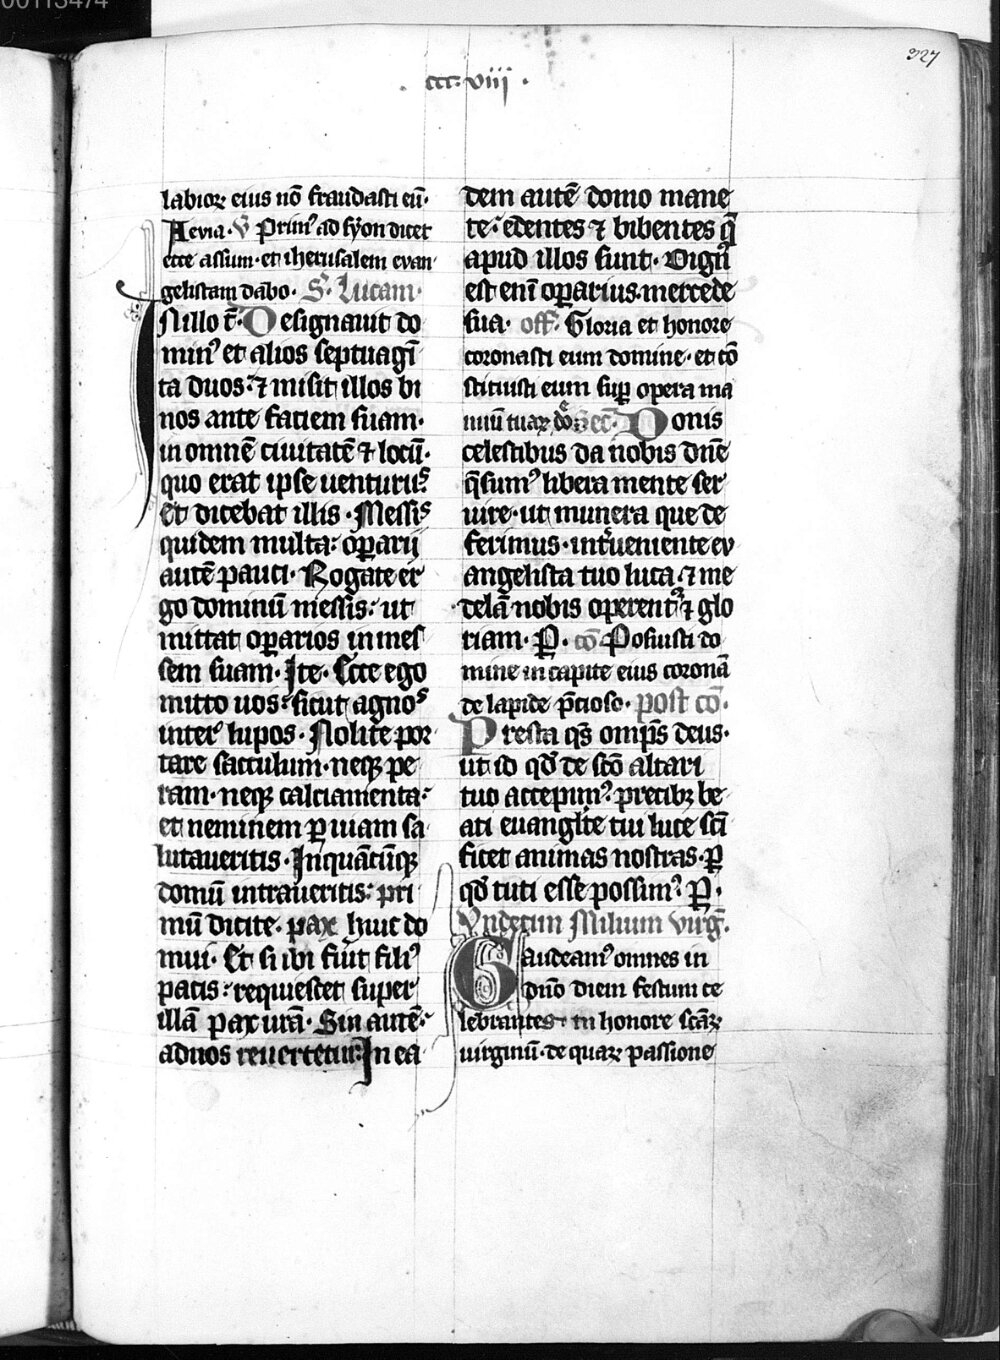 00113474
327
. ccc. viii .
labioꝝ eius nō fraudasti eū.
Aevia. V Primꝰ ad syon dicet
ecce assum. et iherusalem evan
gelistam dabo. S. Lucam.
In illo t̄. Designauit do
minꝰ et alios septuagī
ta duos. ⁊ misit illos bi
nos ante faciem suam.
in omnē ciuitatē ⁊ locū.
quo erat ipse uenturus
et dicebat illis. Messis
quidem multa: oꝑarij
autē pauci. Rogate er
go dominū messis: ut
mittat oꝑarios in mes
sem suam. Ite. Ecce ego
mitto uos: sicut agnos
inter lupos. Nolite por
tare sacculum. neqꝫ pe
ram. neqꝫ calciamenta.
et neminem ꝑ uiam sa
lutaueritis. In quācūqꝫ
domū intraueritis: pri
mū dicite. pax huic do
mui. Et si ibi fuīt filiꝰ
pacis: requiescet super
illā pax urā. Sin autē:
ad uos reuertetur. In ea
dem autē domo mane
te. edentes ⁊ bibentes q̄
apud illos sunt. Dignꝰ
est enī oꝑarius mercede
sua. off. Gloria et honore
coronasti eum domine. et cō
stituisti eum suꝑ opera ma
nuū tuaꝝ dn̄e Sec̄. Donis
celestibus da nobis dn̄e
q̄sumꝰ libera mente ser
uire. ut munera que de
ferimus. int̉ueniente ev
angelista tuo luca. ⁊ me
delā nobis operent᷑ ⁊ glo
riam. P. cō Posuisti do
mine in capite eius coronā
de lapide p̄cioso. post cō.
Presta qs̄ omp̄s deus.
ut id qd̄ de sc̄o altari
tuo accepimꝰ. precibꝫ be
ati euangl̄te tui luce sc̄i
ficet animas nostras. ꝑ
qd̄ tuti esse possimꝰ. P.
Vndecim Milium virḡ.
Gaudeamꝰ omnes in
dn̄o diem festum ce
lebrantes in honore sc̄aꝝ
virginū. de quaꝝ passione